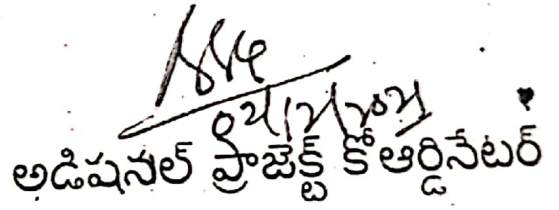 అడిషనల్ ప్రాజెక్ట్ కో ఆర్డినేటర్